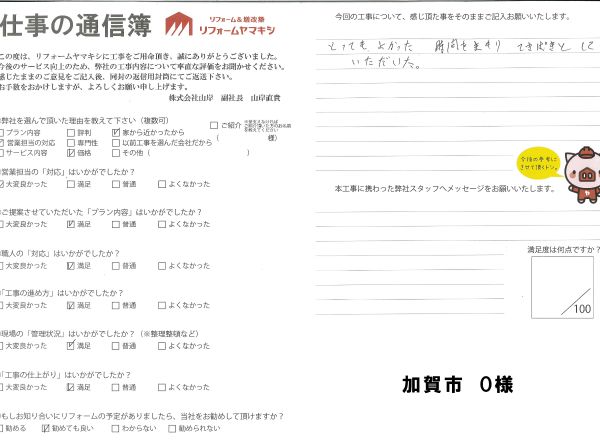 仕事の通信簿
リフォーム&増改築
リフォームヤマキシ
この度は、リフォームヤマキシに工事をご用命頂き、誠にありがとうございました。
今後のサービス向上のため、弊社の工事内容について率直な評価をお聞かせください。
感じたままのご意見をご記入後、同封の返信用封筒にてご返送下さい。
お手数をおかけしますが、よろしくお願い申し上げます。
株式会社山岸 副社長 山岸直貴
弊社を選んで頂いた理由を教えて下さい(複数可)
プラン内容 □評判 ☑家から近かったから
☑営業担当の対応 □専門性 □以前工事を選んだ会社だから
□サービス内容 ☑価格 □その他( )
□ご紹介
( 様)
営業担当の「対応」はいかがでしたか?
☑大変良かった □満足 □普通 □よくなかった
ご提案させていただいた「プラン内容」はいかがでしたか?
□大変良かった ☑満足 □普通 □よくなかった
職人の「対応」はいかがでしたか?
□大変良かった ☑満足 □普通 □よくなかった
「工事の進め方」はいかがでしたか?
□大変良かった ☑満足 □普通 □よくなかった
現場の「管理状況」はいかがでしたか?(※整理整頓など)
□大変良かった ☑満足 □普通 □よくなかった
「工事の仕上がり」はいかがでしたか?
□大変良かった ☑満足 □普通 □よくなかった
もしお知り合いにリフォームの予定がありましたら、当社をお勧めして頂けますか?
□勧める ☑勧めても良い □わからない □勧められない
今回の工事について、感じ頂た事をそのままご記入お願いいたします。
とってもよかった 時間を守り てきぱきとして
いただいた。
今後の参考に
させて頂くトン。
本工事に携わった弊社スタッフへメッセージをお願いいたします。
満足度は何点ですか?
/100
加賀市 O様